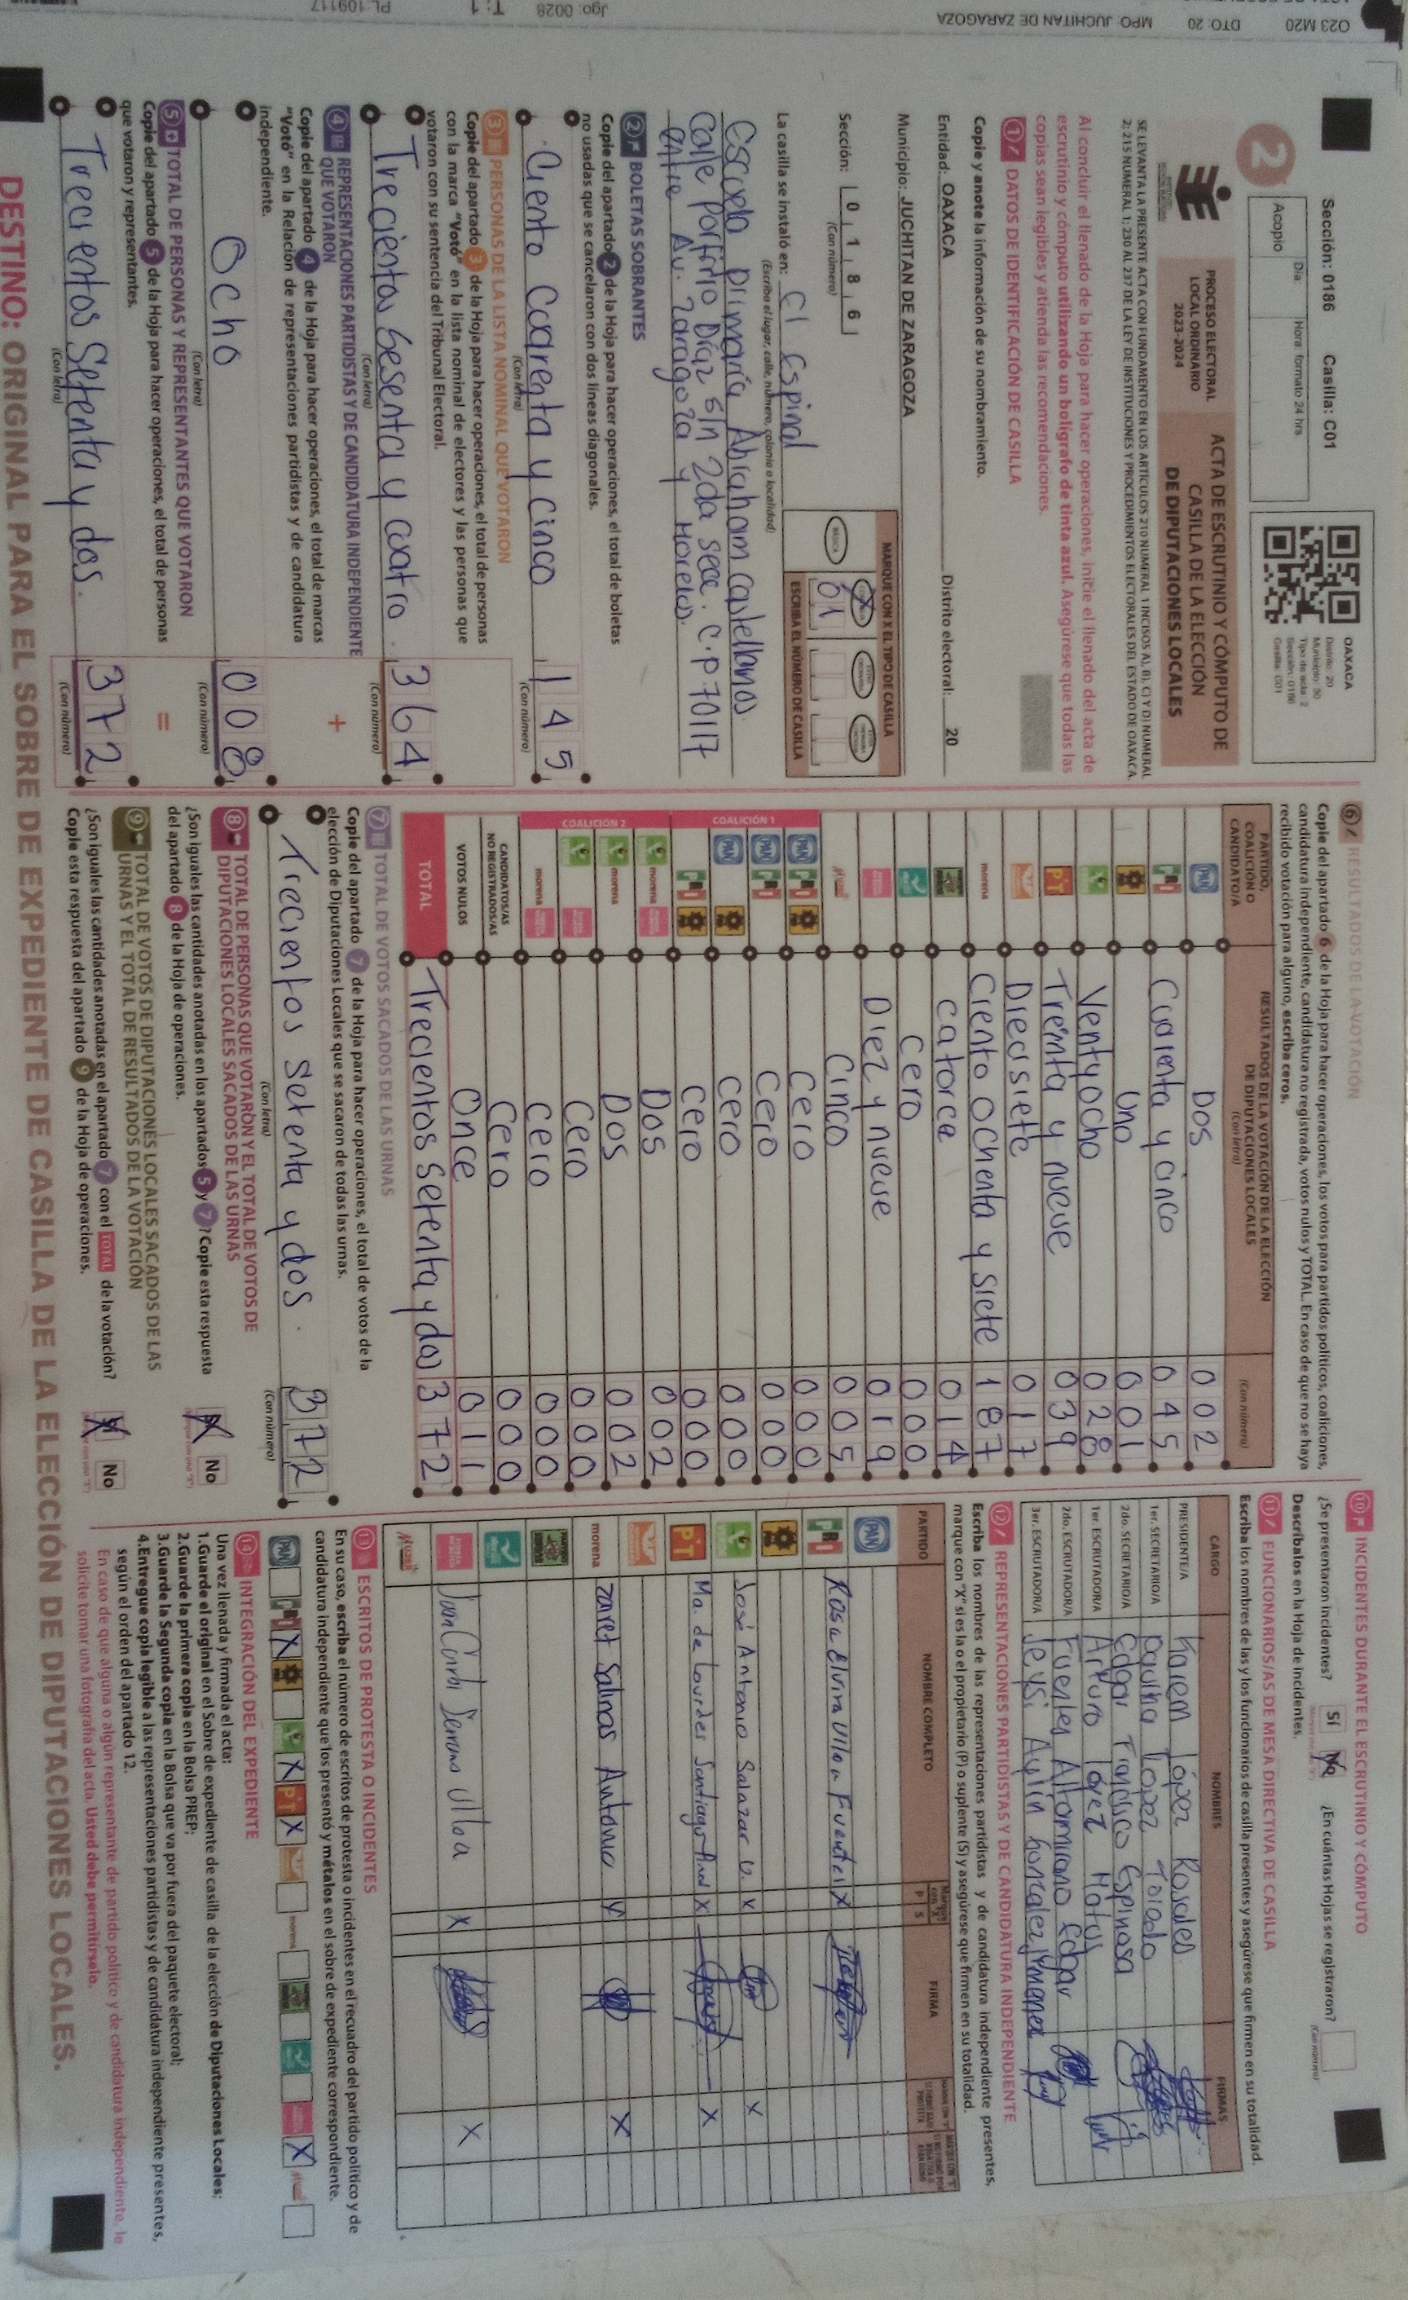 O23 M20 DTO: 20 MPO: JUCHITAN DE ZARAGOZA Jgo: 0028 T: 1 PL: 109117
Sección: 0186 Casilla: C01
2
Acopio
Día
Hora formato 24 hrs
OAXACA
Distrito: 20
Municipio: 50
Tipo de acta: 2
Sección: 0186
Casilla: C01
PROCESO ELECTORAL
LOCAL ORDINARIO
2023-2024
ACTA DE ESCRUTINIO Y CÓMPUTO DE
CASILLA DE LA ELECCIÓN
DE DIPUTACIONES LOCALES
SE LEVANTA LA PRESENTE ACTA CON FUNDAMENTO EN LOS ARTÍCULOS 210 NUMERAL 1 INCISOS A), B), C) Y D) NUMERAL
2; 215 NUMERAL 1; 230 AL 237 DE LA LEY DE INSTITUCIONES Y PROCEDIMIENTOS ELECTORALES DEL ESTADO DE OAXACA.
Al concluir el llenado de la Hoja para hacer operaciones, inicie el llenado del acta de
escrutinio y cómputo utilizando un bolígrafo de tinta azul. Asegúrese que todas las
copias sean legibles y atienda las recomendaciones.
1 DATOS DE IDENTIFICACIÓN DE CASILLA
Copie y anote la información de su nombramiento.
Entidad: OAXACA Distrito electoral: 20
Municipio: JUCHITAN DE ZARAGOZA
Sección: 0 1 8 6
(Con número)
MARQUE CON X EL TIPO DE CASILLA
BÁSICA
01
ESCRIBA EL NÚMERO DE CASILLA
La casilla se instaló en: El Espinal
(Escriba el lugar, calle, número, colonia o localidad)
Escuela Primaria Abraham Castellanos
Calle Porfirio Díaz S/n 2da Secc. C.P 70117
entre Av. Zaragoza y Morelos.
2 BOLETAS SOBRANTES
Copie del apartado 2 de la Hoja para hacer operaciones, el total de boletas
no usadas que se cancelaron con dos líneas diagonales.
Ciento Cuarenta y Cinco 1 4 5
(Con letra) (Con número)
3 PERSONAS DE LA LISTA NOMINAL QUE VOTARON
Copie del apartado 3 de la Hoja para hacer operaciones, el total de personas
con la marca "Votó" en la lista nominal de electores y las personas que
votaron con su sentencia del Tribunal Electoral.
Trecientos Sesenta y Cuatro. 3 6 4
(Con letra) (Con número)
4 REPRESENTACIONES PARTIDISTAS Y DE CANDIDATURA INDEPENDIENTE
QUE VOTARON
Copie del apartado 4 de la Hoja para hacer operaciones, el total de marcas
"Votó" en la Relación de representaciones partidistas y de candidatura
independiente.
+
Ocho 0 0 8
(Con letra) (Con número)
5 TOTAL DE PERSONAS Y REPRESENTANTES QUE VOTARON
Copie del apartado 5 de la Hoja para hacer operaciones, el total de personas
que votaron y representantes.
=
Trecientos Setenta y dos. 3 7 2
(Con letra) (Con número)
6 RESULTADOS DE LA VOTACIÓN
Copie del apartado 6 de la Hoja para hacer operaciones, los votos para partidos políticos, coaliciones,
candidatura independiente, candidatura no registrada, votos nulos y TOTAL. En caso de que no se haya
recibido votación para alguno, escriba ceros.
PARTIDO,
COALICIÓN O
CANDIDATO/A
RESULTADOS DE LA VOTACIÓN DE LA ELECCIÓN
DE DIPUTACIONES LOCALES
(Con letra)
(Con número)
PAN Dos 0 0 2
PRI Cuarenta y cinco 0 4 5
Uno 0 0 1
Ventyocho 0 2 8
PT Treinta y nueve 0 3 9
Diecisiete 0 1 7
morena Ciento Ochenta y siete 1 8 7
Catorce 0 1 4
Cero 0 0 0
Diez y nueve 0 1 9
Cinco 0 0 5
COALICIÓN 1
PAN PRI Cero 0 0 0
PAN PRI Cero 0 0 0
PAN Cero 0 0 0
PRI Cero 0 0 0
COALICIÓN 2
morena Dos 0 0 2
morena Dos 0 0 2
Cero 0 0 0
morena Cero 0 0 0
CANDIDATOS/AS
NO REGISTRADOS/AS Cero 0 0 0
VOTOS NULOS Once 0 1 1
TOTAL Trecientos Setenta y dos 3 7 2
7 TOTAL DE VOTOS SACADOS DE LAS URNAS
Copie del apartado 7 de la Hoja para hacer operaciones, el total de votos de la
elección de Diputaciones Locales que se sacaron de todas las urnas.
Trecientos Setenta y dos. 3 7 2
(Con letra) (Con número)
8 TOTAL DE PERSONAS QUE VOTARON Y EL TOTAL DE VOTOS DE
DIPUTACIONES LOCALES SACADOS DE LAS URNAS
¿Son iguales las cantidades anotadas en los apartados 5 y 7? Copie esta respuesta
del apartado 8 de la Hoja de operaciones.
No
9 TOTAL DE VOTOS DE DIPUTACIONES LOCALES SACADOS DE LAS
URNAS Y EL TOTAL DE RESULTADOS DE LA VOTACIÓN
¿Son iguales las cantidades anotadas en el apartado 7 con el TOTAL de la votación?
Copie esta respuesta del apartado 9 de la Hoja de operaciones.
No
10 INCIDENTES DURANTE EL ESCRUTINIO Y CÓMPUTO
¿Se presentaron incidentes? Sí No ¿En cuántas Hojas se registraron?
(Con número)
Descríbalos en la Hoja de incidentes.
11 FUNCIONARIOS/AS DE MESA DIRECTIVA DE CASILLA
Escriba los nombres de las y los funcionarios de casilla presentes y asegúrese que firmen en su totalidad.
CARGO NOMBRES FIRMAS
PRESIDENTE/A Karem López Rosales
1er. SECRETARIO/A Paulina Lopez Toledo
2do. SECRETARIO/A Edgar Francisco Espinosa
1er. ESCRUTADOR/A Arturo Lopez Matus
2do. ESCRUTADOR/A Fuentes Altamirano Edgar
3er. ESCRUTADOR/A Jeysi Aylin Gonzalez Jimenez
12 REPRESENTACIONES PARTIDISTAS Y DE CANDIDATURA INDEPENDIENTE
Escriba los nombres de las representaciones partidistas y de candidatura independiente presentes,
marque con "X" si es la o el propietario (P) o suplente (S) y asegúrese que firmen en su totalidad.
PARTIDO NOMBRE COMPLETO P S FIRMA
PAN
PRI Rosa Elvira Ulloa Fuentes X
José Antonio Salazar V. X X
PT Ma. de Lourdes Santiago X X
morena Zaret Salinas Antonio X X
Juan Carlos Serrano Ulloa X X
13 ESCRITOS DE PROTESTA O INCIDENTES
En su caso, escriba el número de escritos de protesta o incidentes en el recuadro del partido político y de
candidatura independiente que los presentó y métalos en el sobre de expediente correspondiente.
PAN PRI X X PT X morena X
INTEGRACIÓN DEL EXPEDIENTE
Una vez llenada y firmada el acta:
1.Guarde el original en el Sobre de expediente de casilla de la elección de Diputaciones Locales;
2.Guarde la primera copia en la Bolsa PREP;
3.Guarde la Segunda copia en la Bolsa que va por fuera del paquete electoral;
4.Entregue copia legible a las representaciones partidistas y de candidatura independiente presentes,
según el orden del apartado 12.
En caso de que alguna o algún representante de partido político y de candidatura independiente, le
solicite tomar una fotografía del acta. Usted debe permitírselo.
DESTINO: ORIGINAL PARA EL SOBRE DE EXPEDIENTE DE CASILLA DE LA ELECCIÓN DE DIPUTACIONES LOCALES.